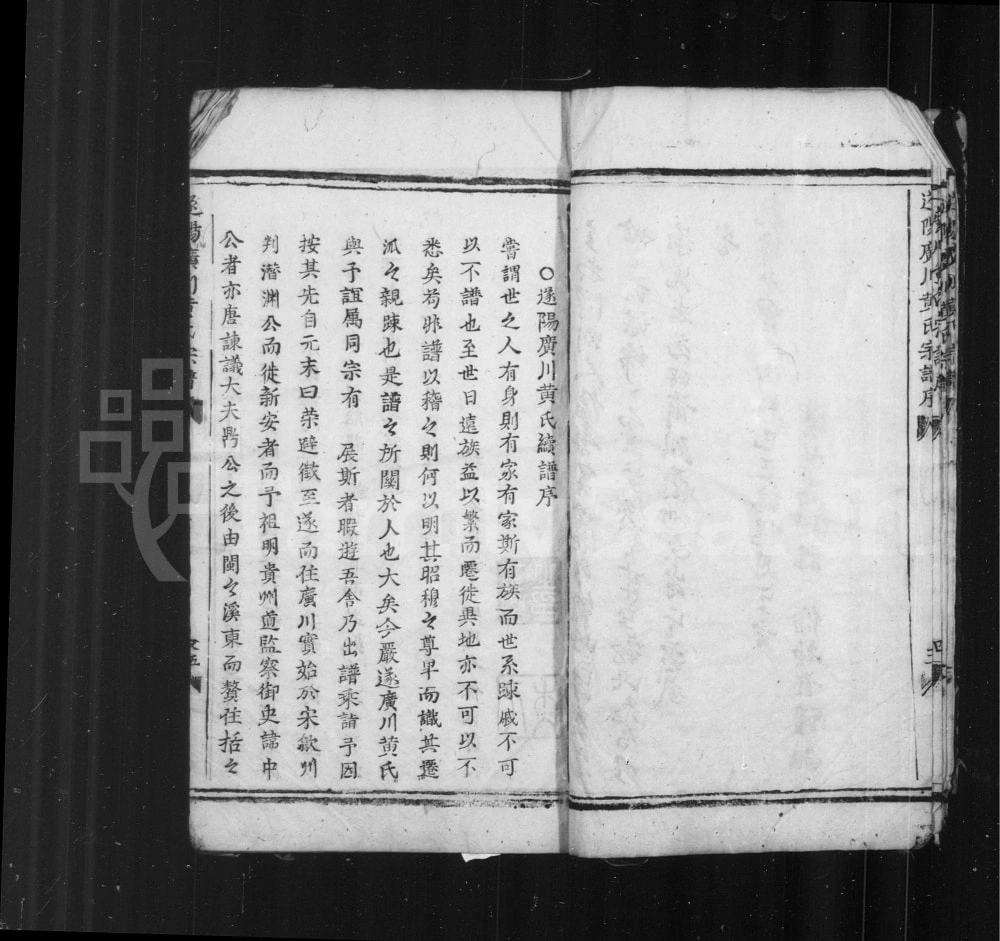 遂陽廣川黃氏宗譜序
○遂陽廣川黄氏續譜序
嘗謂世之人有身則有家有家斯有族而世系踈戚不可
以不譜也至世日遠族益以繁而遷徙異地亦不可以不
悉矣苟非譜以稽之則何以明其昭穆之尊卑而識其遷
派之親踈也是譜之所関於人也大矣今嚴遂廣川黄氏
與予誼属同宗有 展斯者暇遊吾舎乃出譜乘諸予因
按其先自元末曰荣避徵至遂而住廣川實始於宋歙州
判潛渊公而徙新安者而予祖明貴州道監察御史諱中
公者亦唐諫議大夫鹗公之後由閩之溪東而贅住括之
遂陽廣川黃氏宗譜